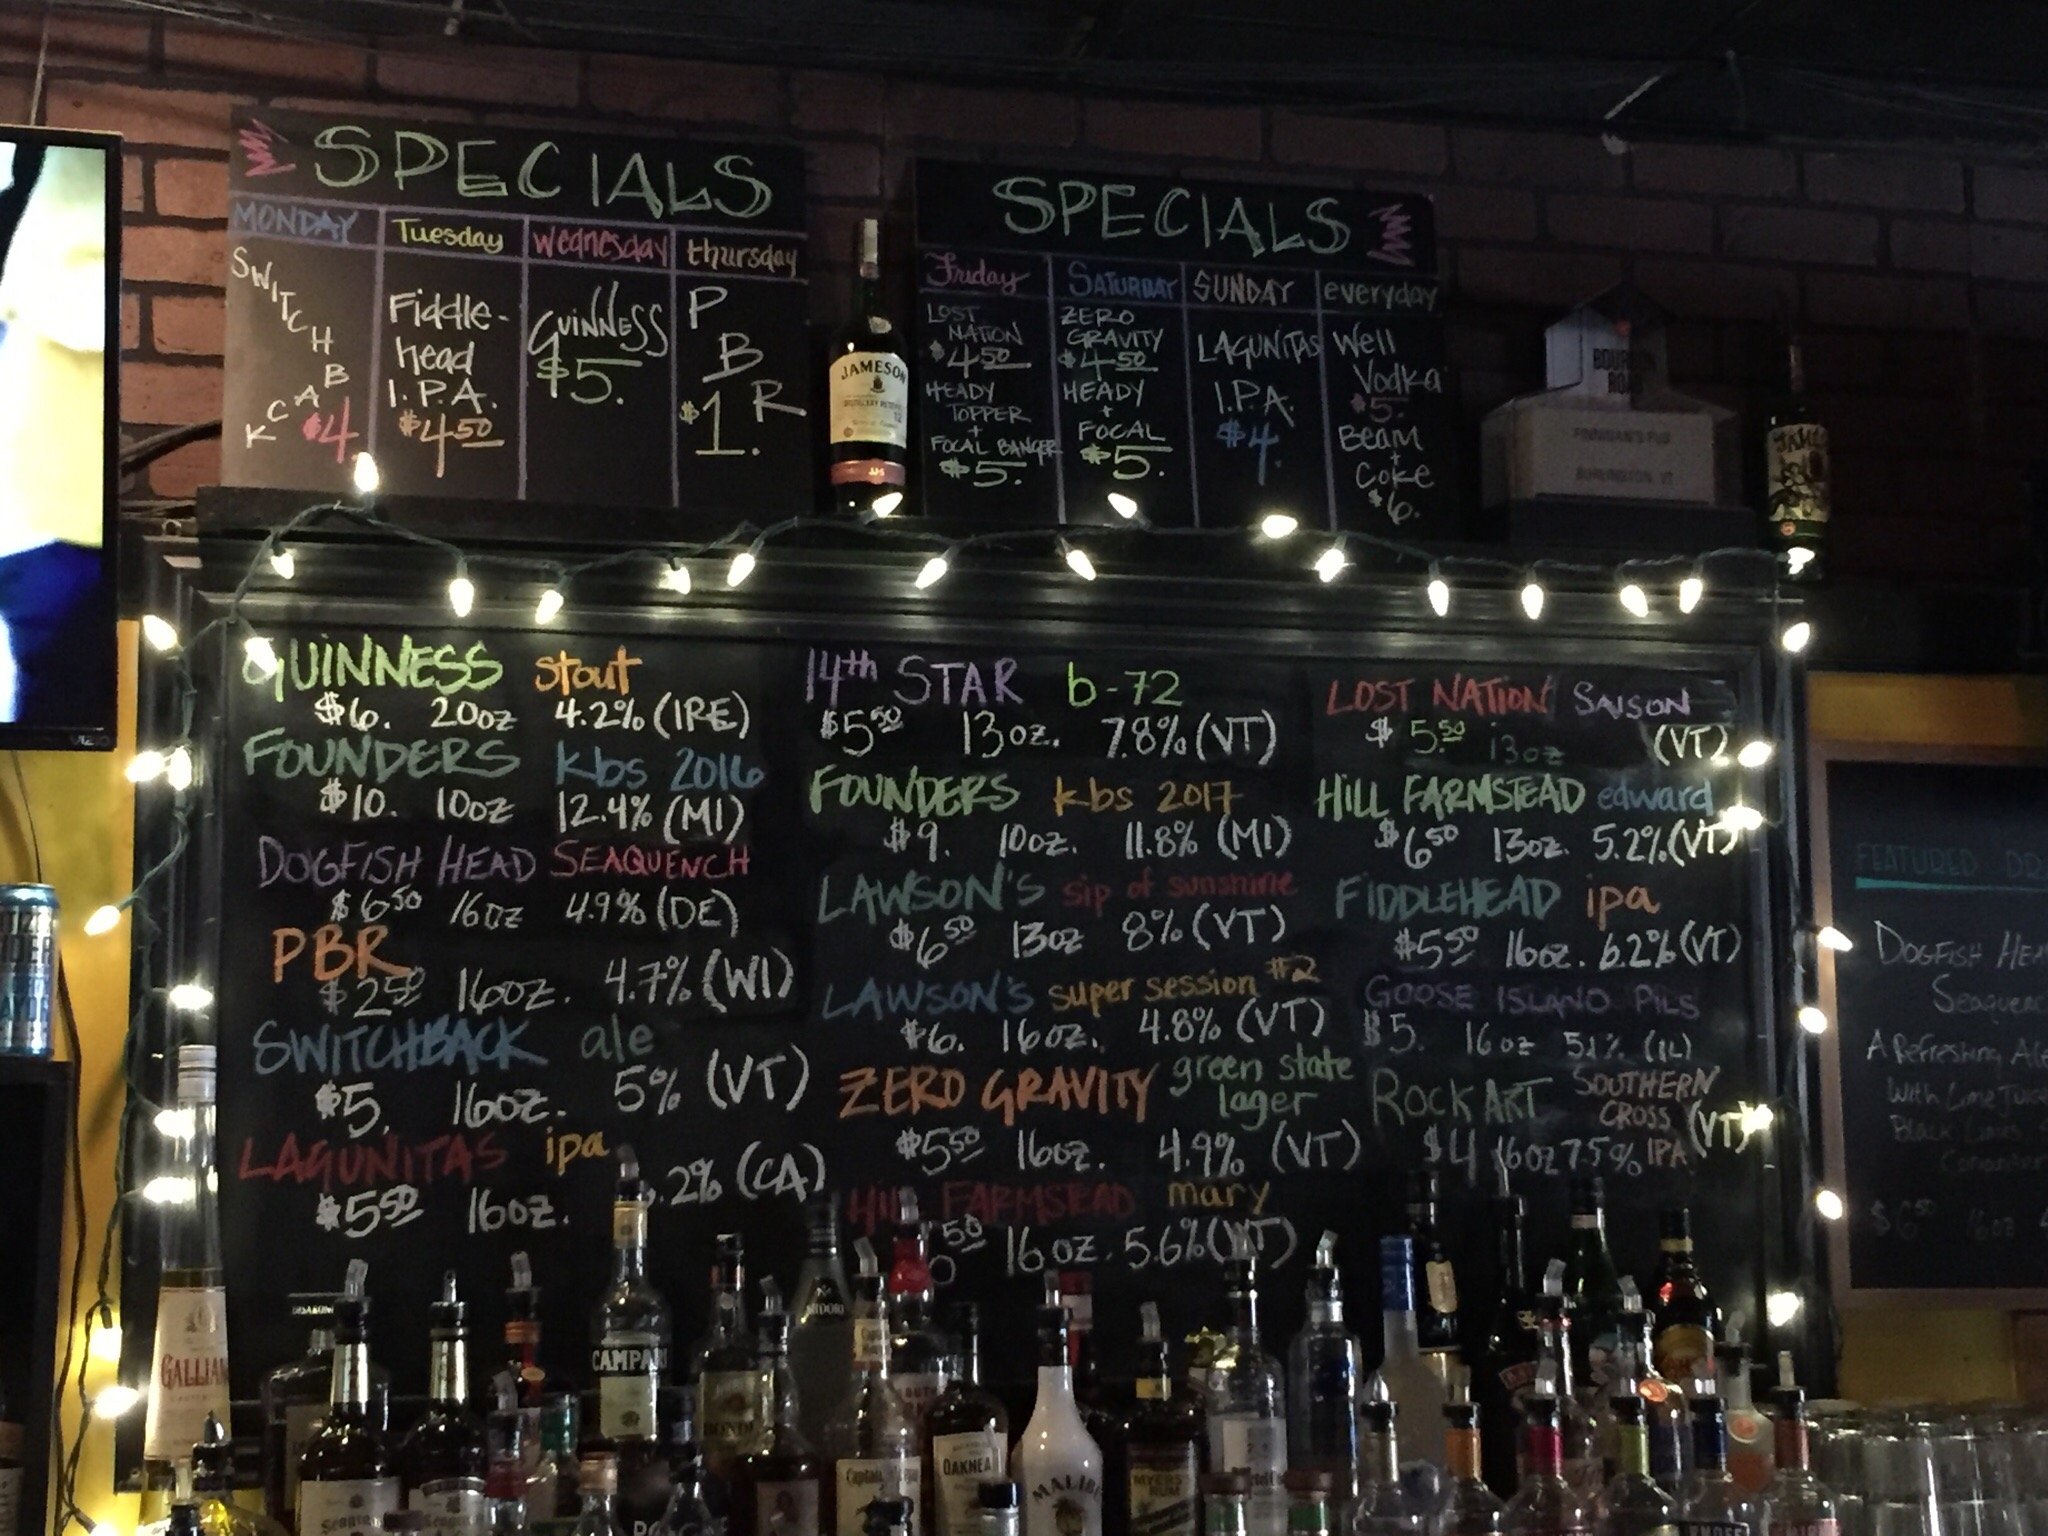 SPECIALS
MONDAY
SWITCHBACK
$4.
Tuesday
Fiddle-
head
I.P.A.
$4.50
Wednesday
GUINNESS
$5.
thursday
P
B
R
$1.
SPECIALS
Friday
LOST
NATION
$4.50
HEADY
TOPPER
+
FOCAL BANGER
$5.
SATURDAY
ZERO
GRAVITY
$4.50
HEADY
+
FOCAL
$5.
SUNDAY
LAGUNITAS
I.P.A.
$4.
everyday
Well
Vodka
$5.
BEAM
+
COKE
$6.
JAMESON
BOURBON
ROAD
FINNIGAN'S PUB
BURLINGTON VT
VIZIO
GUINNESS stout
$6. 20oz 4.2% (IRE)
FOUNDERS kbs 2016
$10. 10oz 12.4% (MI)
DOGFISH HEAD SEAQUENCH
$6.50 16oz 4.9% (DE)
PBR
$2.50 16oz. 4.7% (WI)
SWITCHBACK ale
$5. 16oz. 5% (VT)
LAGUNITAS ipa
$5.50 16oz. .2% (CA)
14th STAR b-72
$5.50 13oz. 7.8% (VT)
FOUNDERS kbs 2017
$9. 10oz. 11.8% (MI)
LAWSON'S sip of sunshine
$6.50 13oz 8% (VT)
LAWSON'S super session #2
$6. 16oz. 4.8% (VT)
ZERO GRAVITY green state
lager
$5.50 16oz. 4.9% (VT)
HILL FARMSTEAD mary
50 16oz. 5.6% (VT)
LOST NATION SAISON
$5.50 13oz (VT)
HILL FARMSTEAD edward
$6.50 13oz. 5.2% (VT)
FIDDLEHEAD ipa
$5.50 16oz. 6.2% (VT)
GOOSE ISLAND PILS
$5. 16oz 5.1% (IL)
ROCK ART SOUTHERN
CROSS (VT)
$4 16oz 7.5% IPA
FEATURED DR
DOGFISH HEA
Seaquenc
A Refreshing Ale
With Lime Juice
Black Limes
Coriander
$6.50 16oz
GALLIAN
CAMPARI
MIDORI
Captain
OAKHEA
MALIBU
MYERS'S
RUM
Seagram's